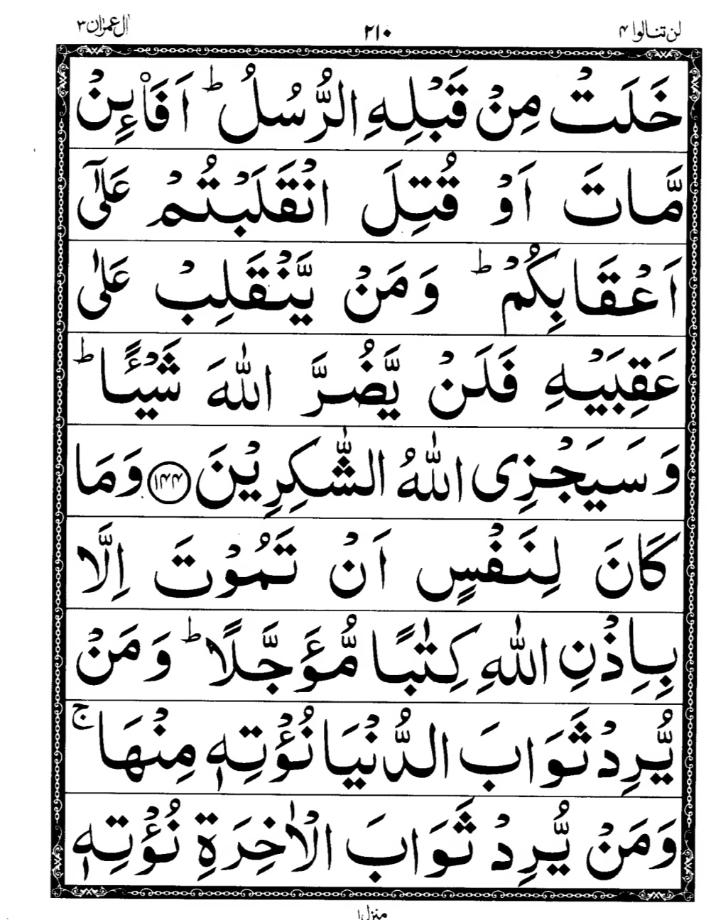 لن تنالوا ۴ ۲۱۰ اٰل عمرٰن ۳
خَلَتْ مِنْ قَبْلِهِ الرُّسُلُ ؕ اَفَا۟ئِنْ
مَّاتَ اَوْ قُتِلَ انْقَلَبْتُمْ عَلٰٓى
اَعْقَابِكُمْ ؕ وَمَنْ يَّنْقَلِبْ عَلٰى
عَقِبَيْهِ فَلَنْ يَّضُرَّ اللّٰهَ شَيْـًٔا ؕ
وَسَيَجْزِى اللّٰهُ الشّٰكِرِيْنَ ﴿۱۴۴﴾ وَمَا
كَانَ لِنَفْسٍ اَنْ تَمُوْتَ اِلَّا
بِاِذْنِ اللّٰهِ كِتٰبًا مُّؤَجَّلًا ؕ وَمَنْ
يُّرِدْ ثَوَابَ الدُّنْيَا نُؤْتِهٖ مِنْهَا ۚ
وَمَنْ يُّرِدْ ثَوَابَ الْاٰخِرَةِ نُؤْتِهٖ
منزل ۱